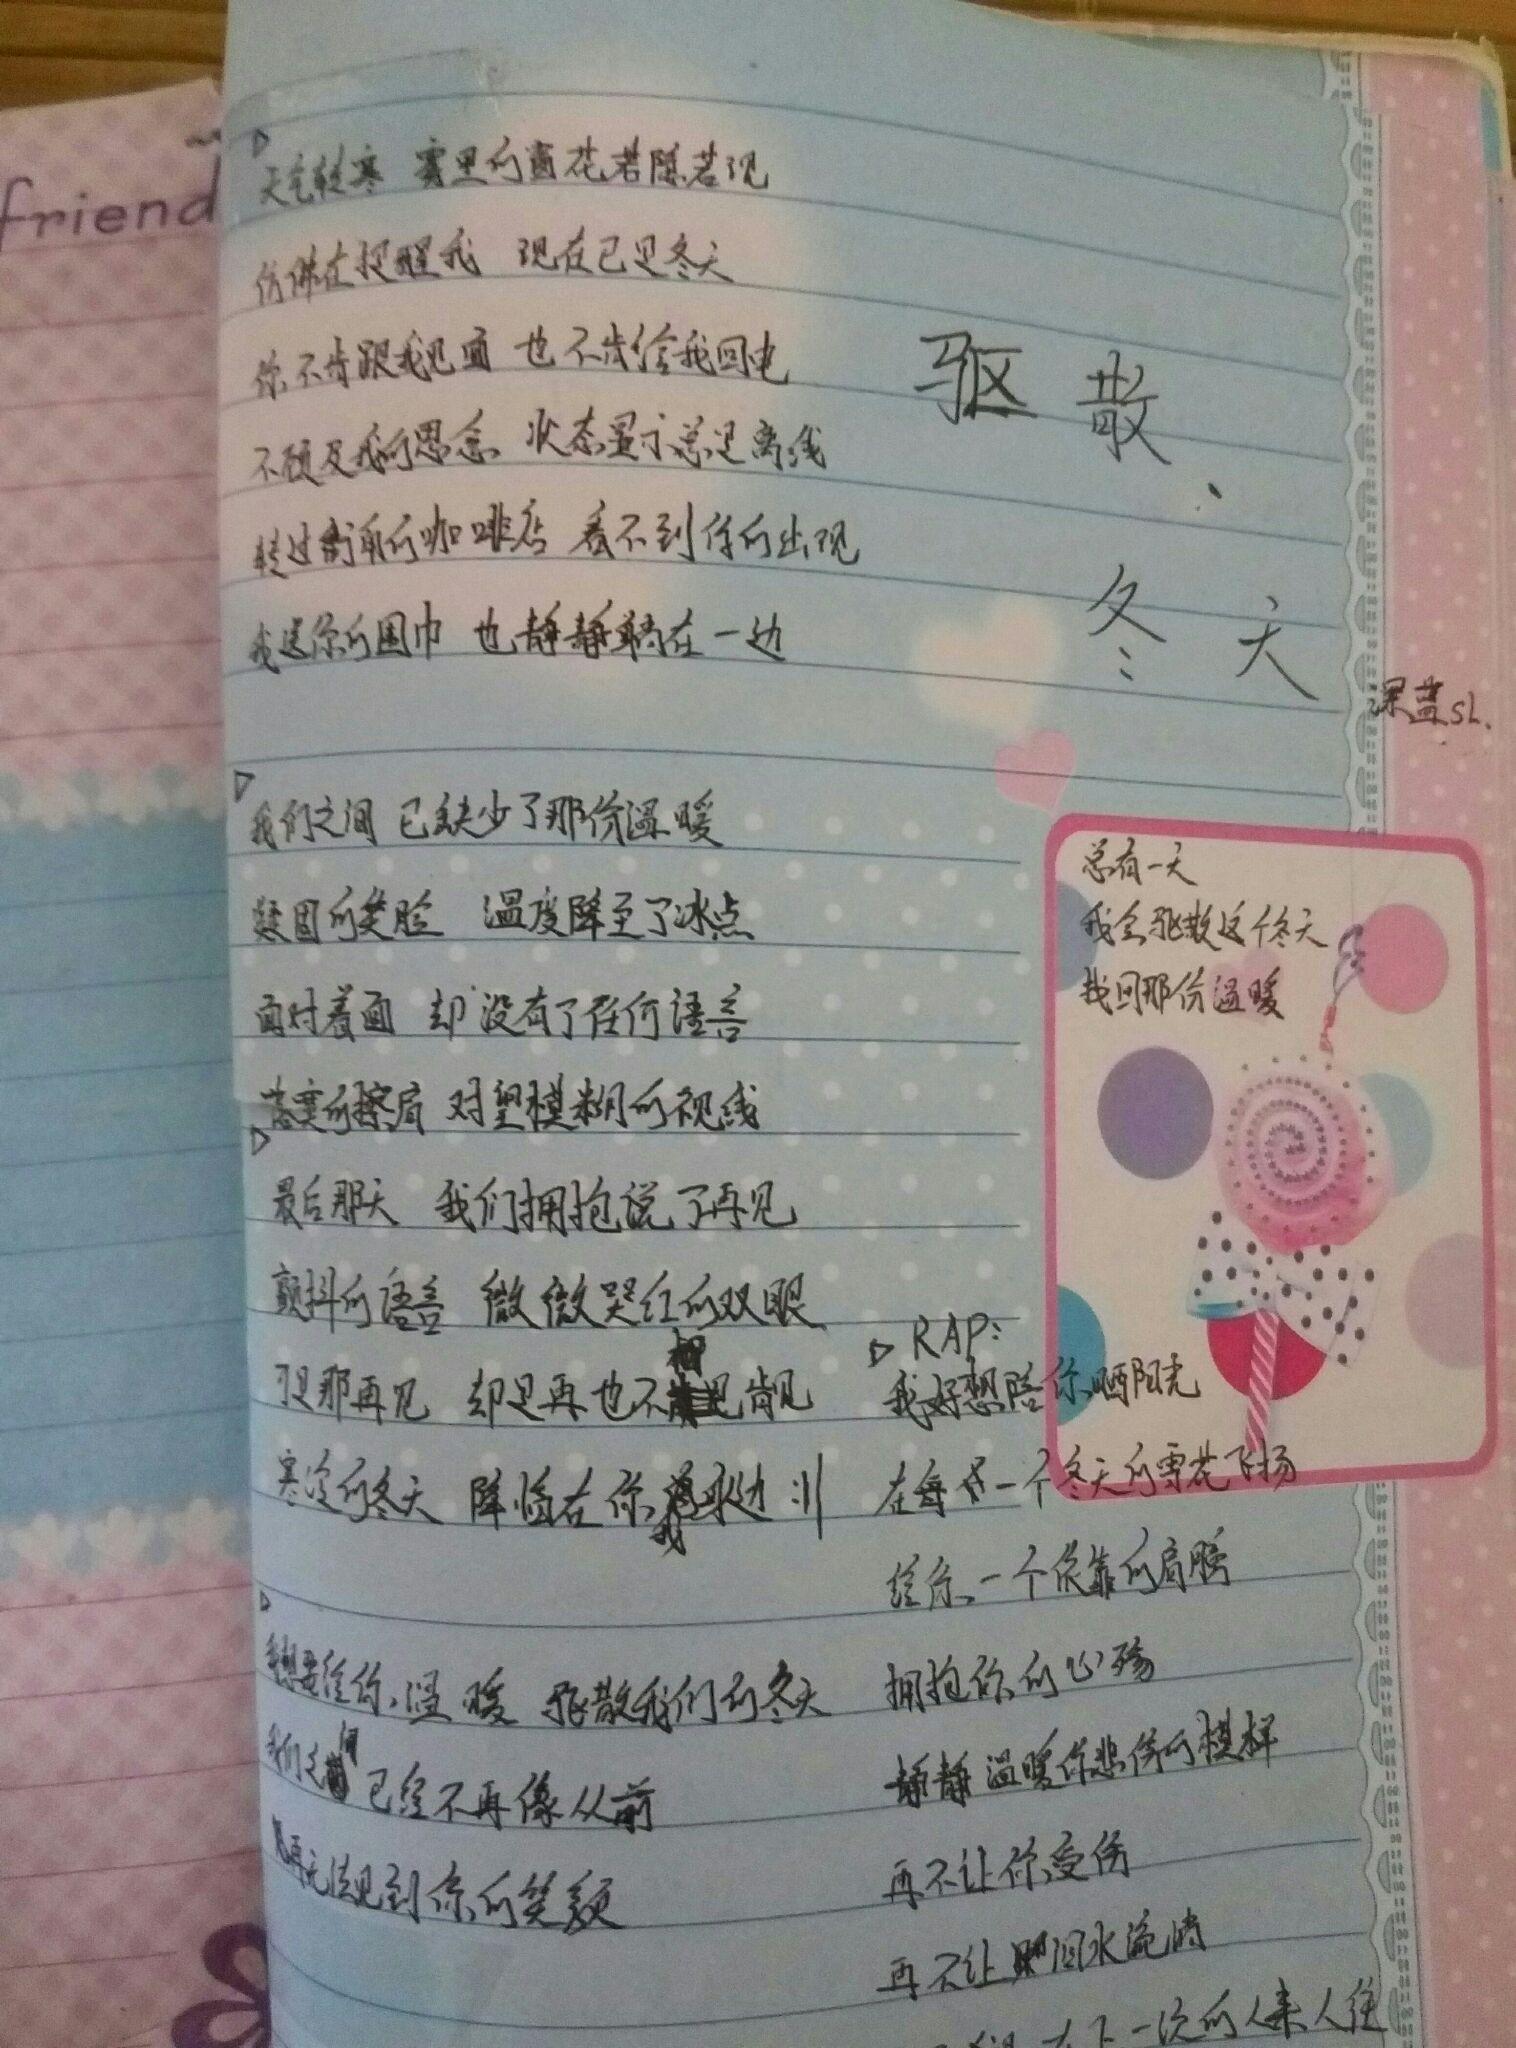 friend
天气转寒 雾里的窗花若隐若现
仿佛在提醒我 现在已是冬天
你不肯跟我见面 也不肯给我回电
不顾及我的思念 状态显示总是离线
转过街角的咖啡店 看不到你的出现
我送你的围巾 也静静躺在一边
驱散、
冬天
深蓝SL.
我们之间 已缺少了那份温暖
凝固的笑脸 温度降至了冰点
面对着面 却没有了任何语言
落寞的擦肩 对望模糊的视线
最后那天 我们拥抱说了再见
颤抖的语言 微微哭红的双眼
可是那再见 却是再也不肯相见
寒冷的冬天 降临在你我身边 :||
总有一天
我会驱散这个冬天
找回那份温暖
我想要给你温暖 驱散我们的冬天
我们之间 已经不再像从前
再无法见到你的笑颜
RAP:
我好想陪你晒阳光
在每一个冬天的雪花飞扬
给你一个依靠的肩膀
拥抱你的心殇
静静温暖你悲伤的模样
再不让你受伤
再不让眼泪水流淌
在下一次的人来人往